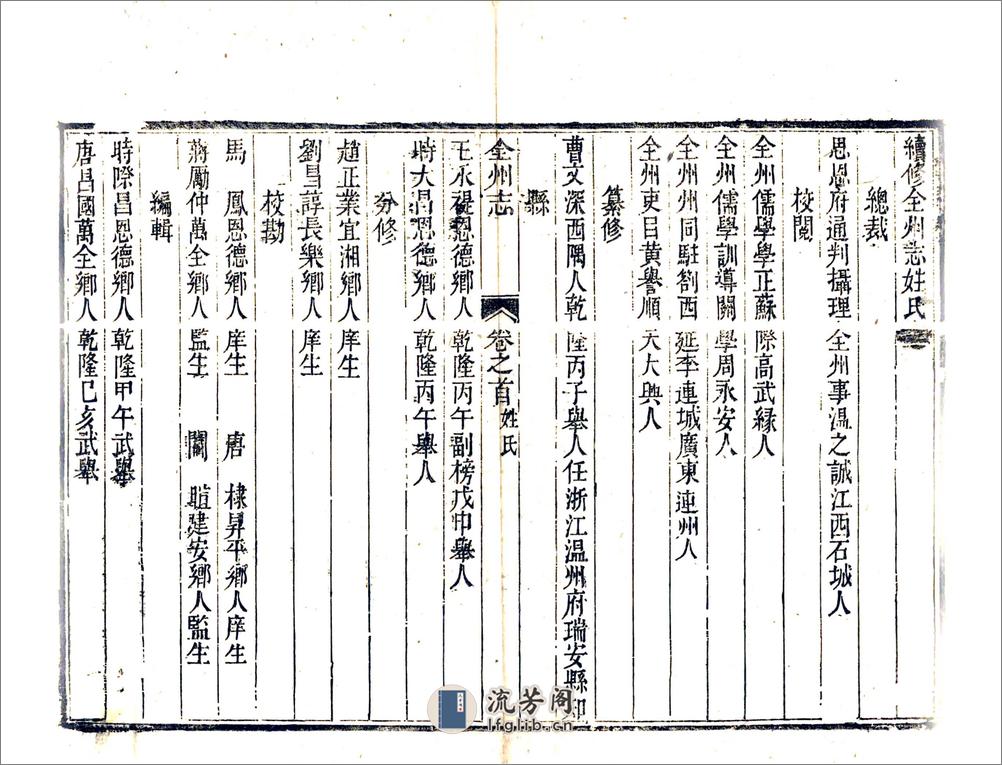 續修全州志姓氏
總裁
思恩府通判攝理全州事溫之誠江西石城人
校閱
全州儒學學正蘇際高武緣人
全州儒學訓導關學周永安人
全州州同駐劄西延李連城廣東連州人
全州吏目黃譽順天大興人
纂修
曹文深西隅人乾隆丙子舉人任浙江溫州府瑞安縣知
縣
全州志
卷之首
姓氏
王永禔恩德鄉人乾隆丙午副榜戊申舉人
時大昌恩德鄉人乾隆丙午舉人
分修
趙正業宜湘鄉人庠生
劉昌諄長樂鄉人庠生
校勘
馬鳳恩德鄉人庠生 唐棣昇平鄉人庠生
蔣勵仲萬全鄉人監生 關暄建安鄉人監生
編輯
時際昌恩德鄉人乾隆甲午武舉
唐昌國萬全鄉人乾隆己亥武舉
流芳阁
lfglib.cn